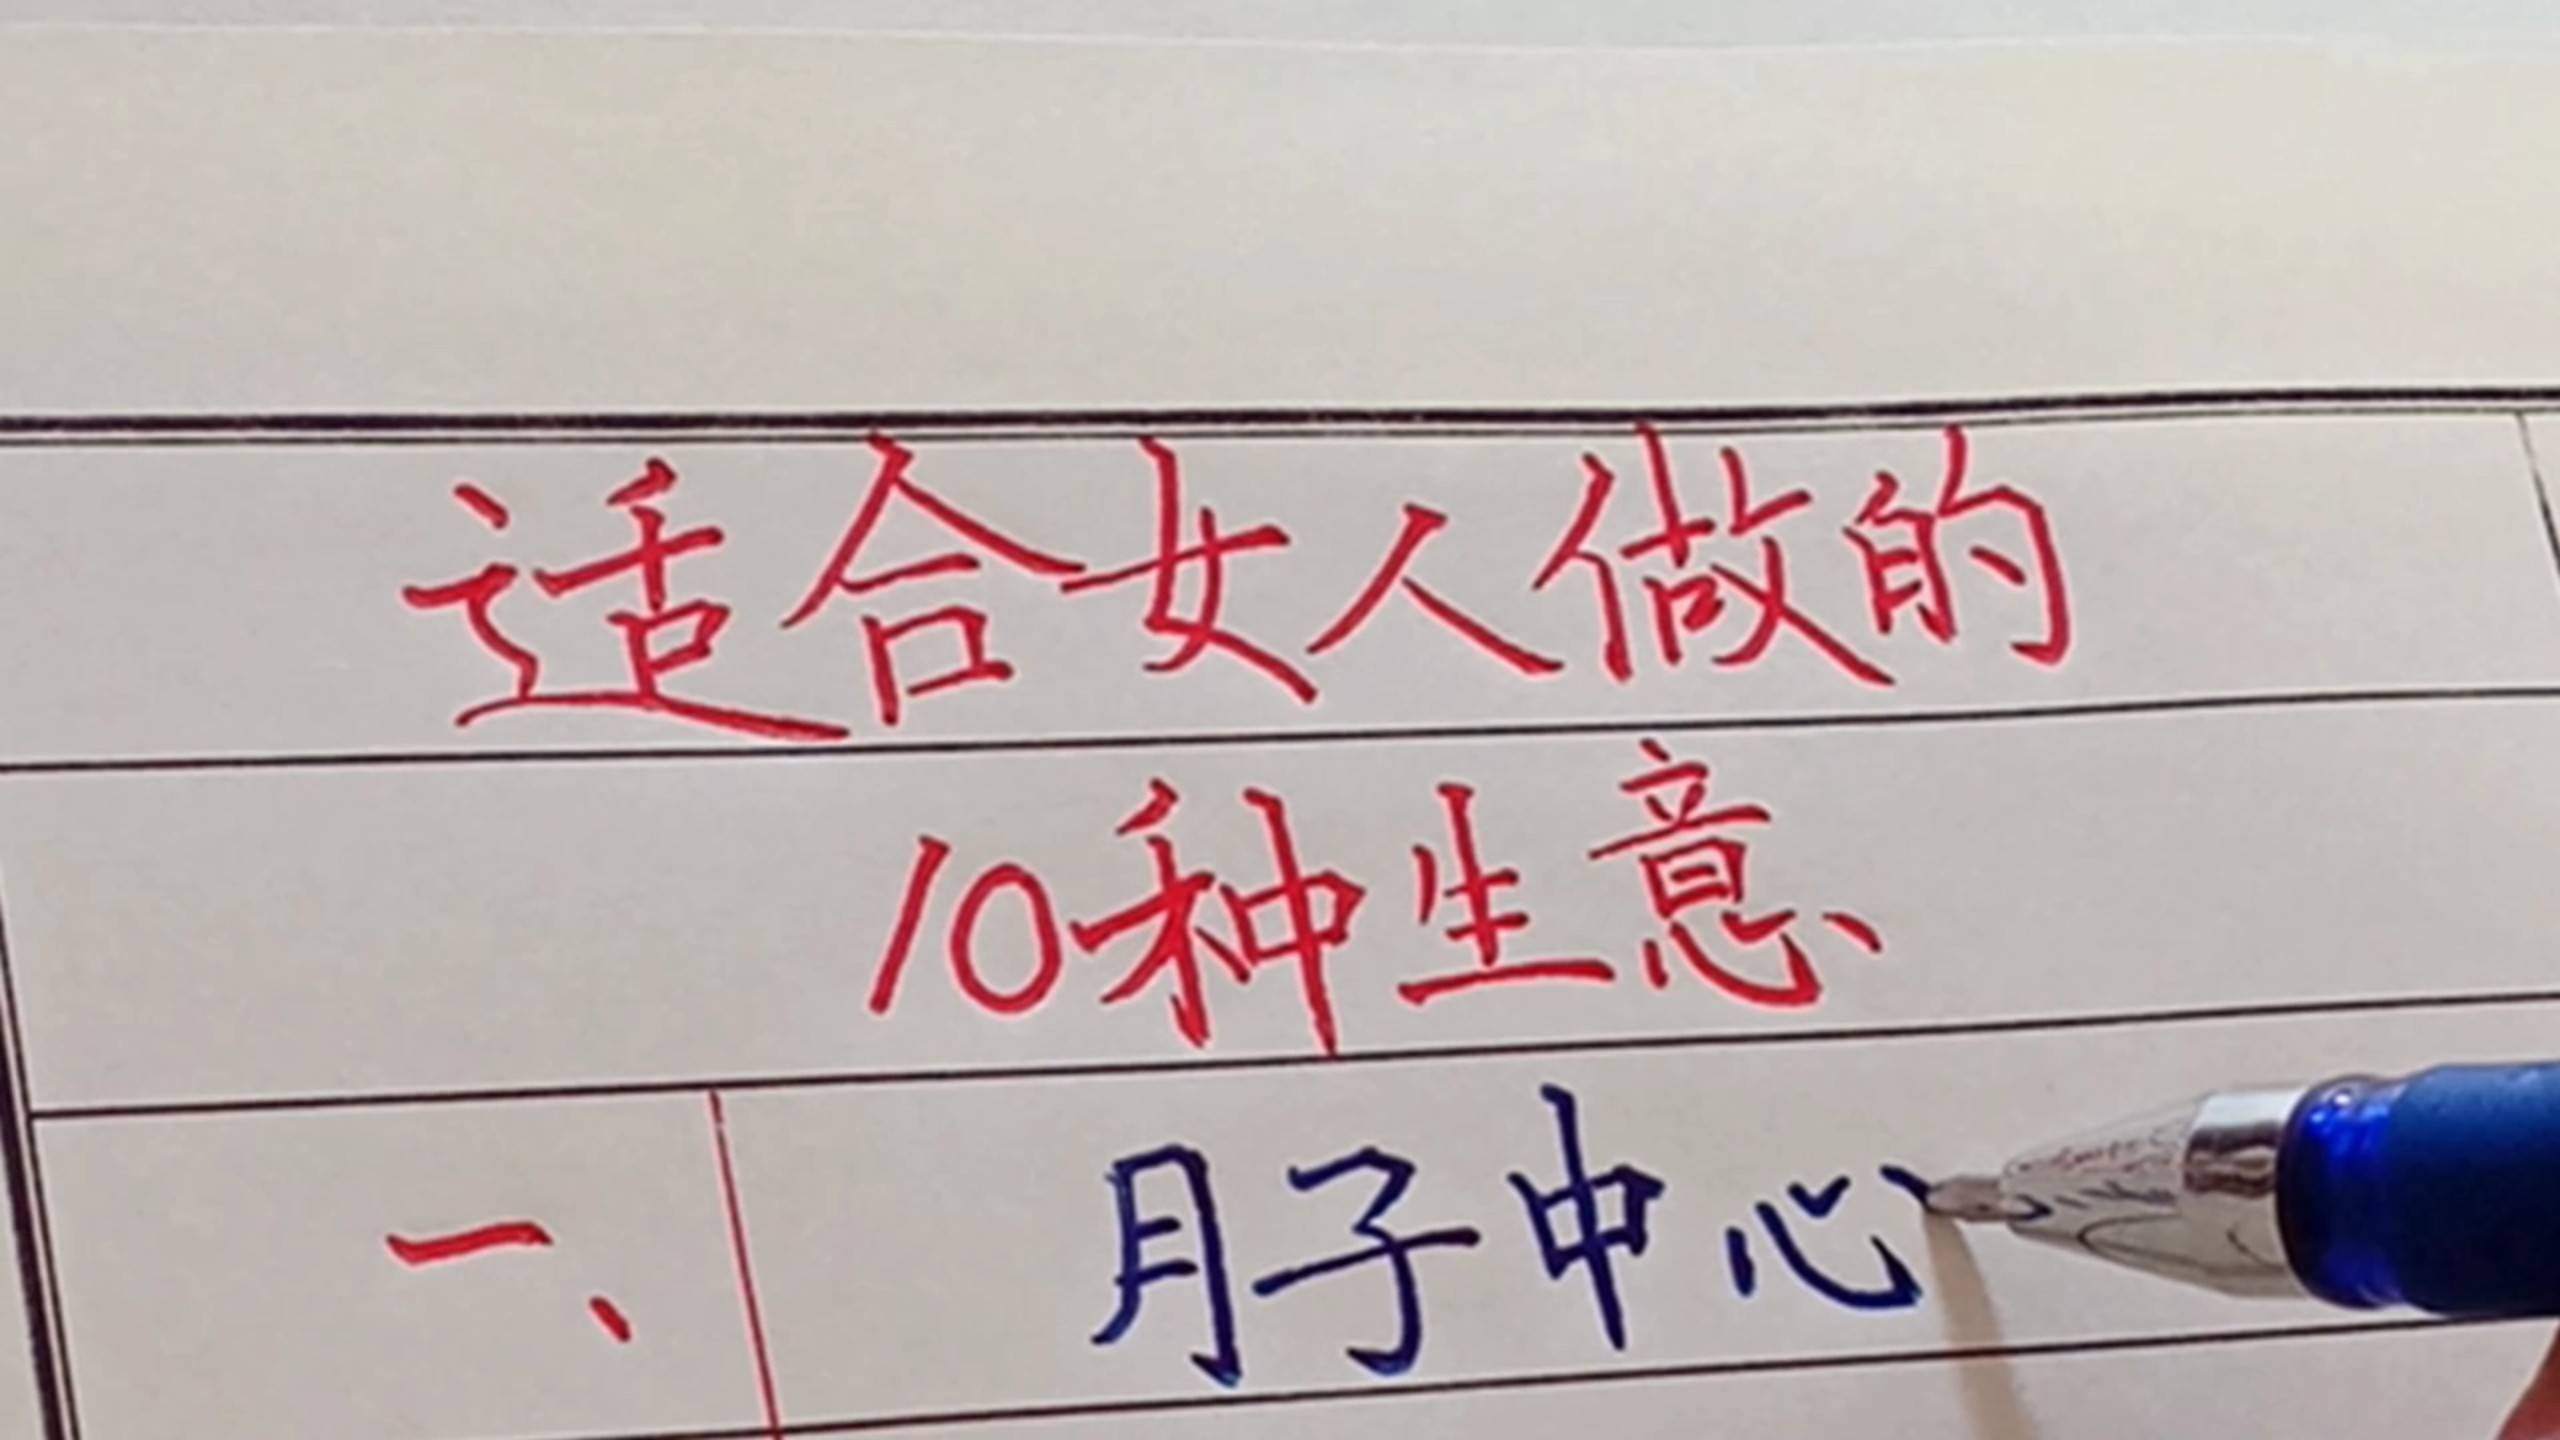 适合女人做的
10种生意
一、月子中心